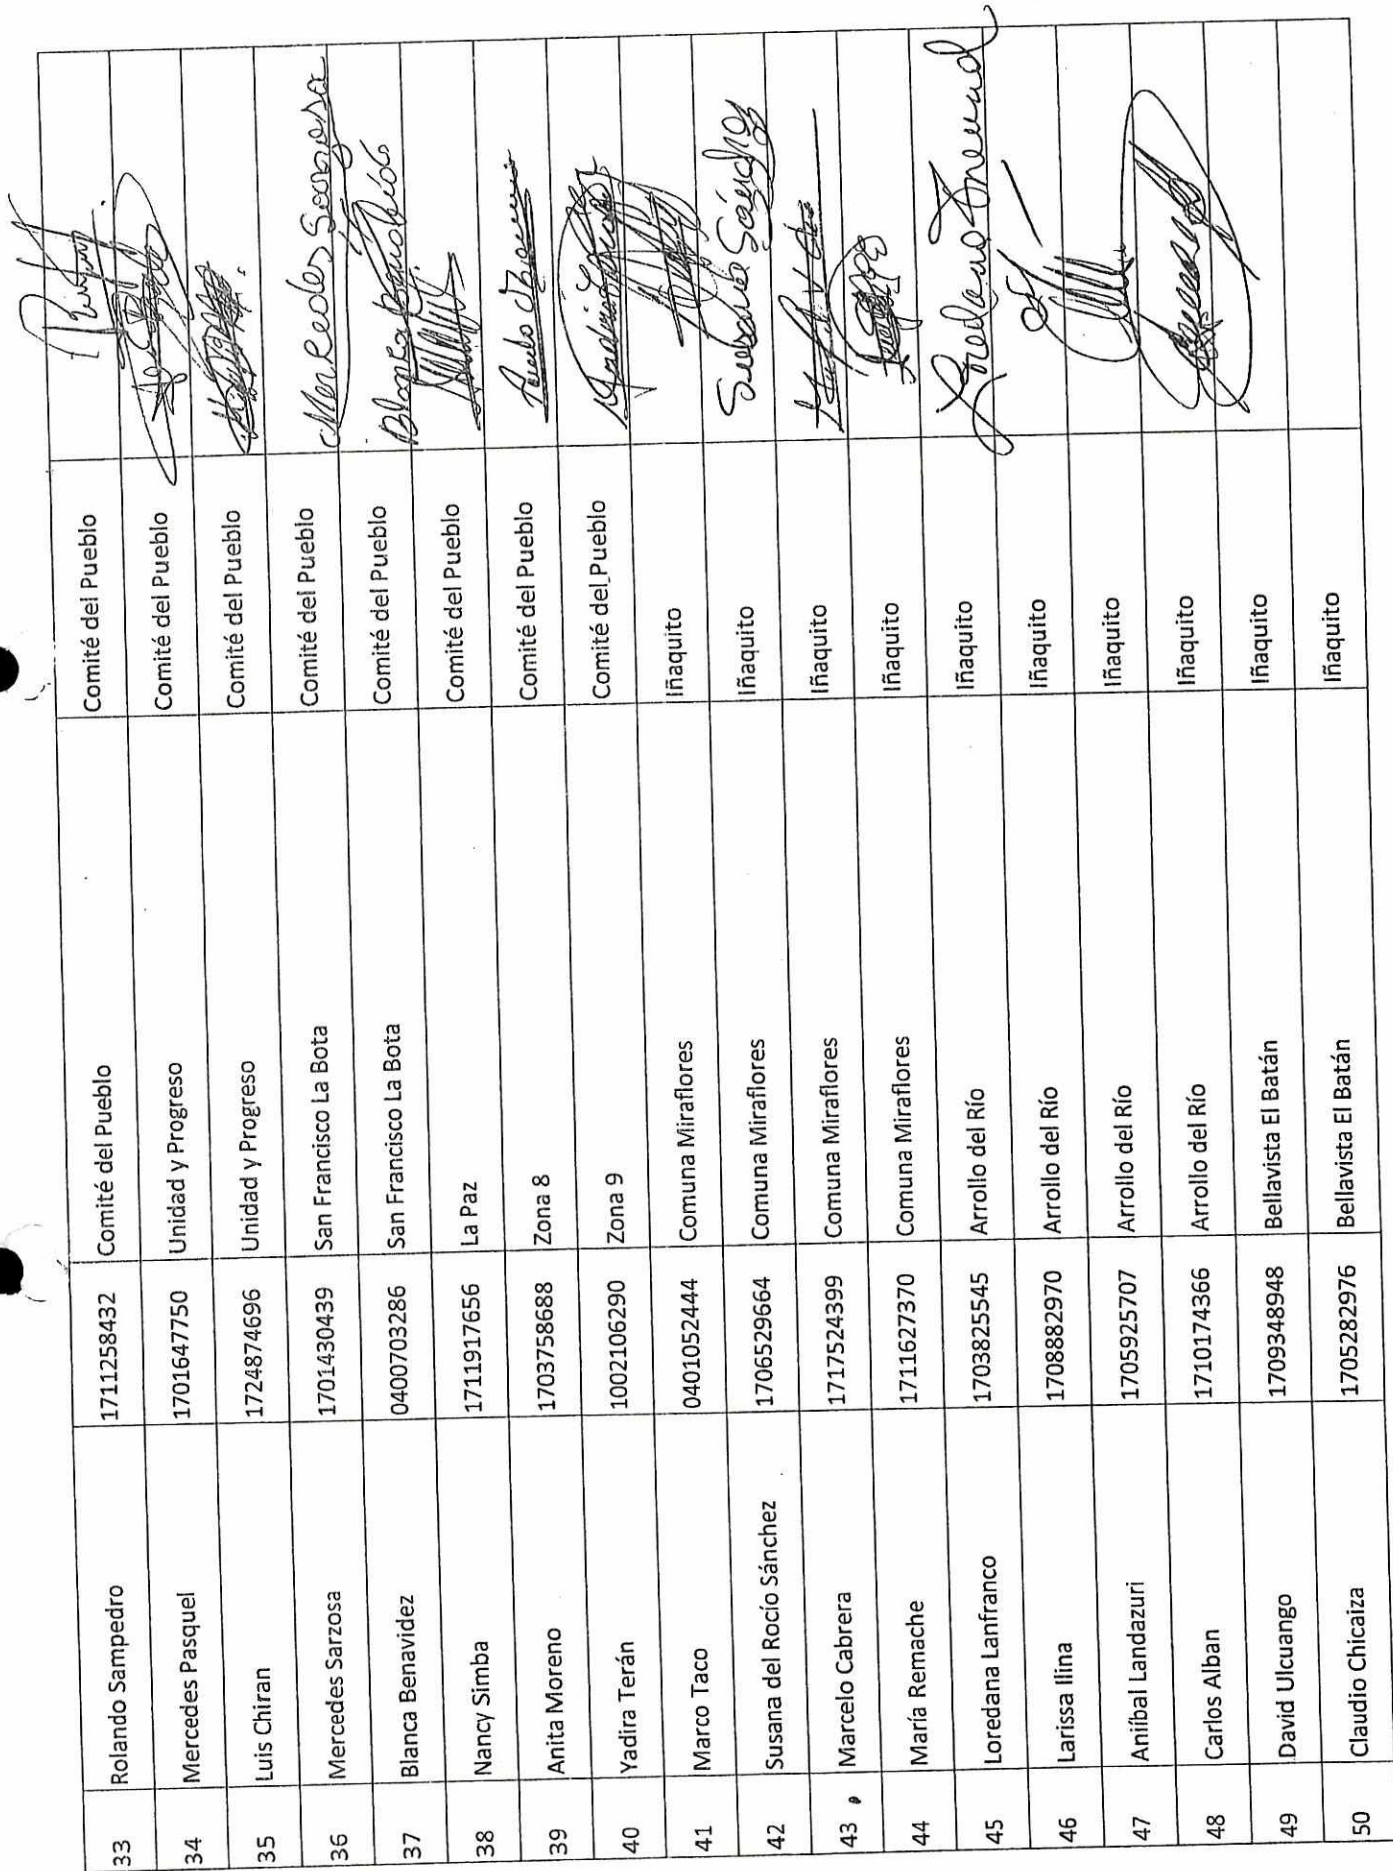 33 Rolando Sampedro 1711258432 Comité del Pueblo Comité del Pueblo
34 Mercedes Pasquel 1701647750 Unidad y Progreso Comité del Pueblo
35 Luis Chiran 1724874696 Unidad y Progreso Comité del Pueblo
36 Mercedes Sarzosa 1701430439 San Francisco La Bota Comité del Pueblo Mercedes Sarzosa
37 Blanca Benavidez 0400703286 San Francisco La Bota Comité del Pueblo Blanca
38 Nancy Simba 1711917656 La Paz Comité del Pueblo
39 Anita Moreno 1703758688 Zona 8 Comité del Pueblo
40 Yadira Terán 1002106290 Zona 9 Comité del Pueblo
41 Marco Taco 0401052444 Comuna Miraflores Iñaquito
42 Susana del Rocío Sánchez 1706529664 Comuna Miraflores Iñaquito Susana Sánchez
43 Marcelo Cabrera 1717524399 Comuna Miraflores Iñaquito
44 María Remache 1711627370 Comuna Miraflores Iñaquito
45 Loredana Lanfranco 1703825545 Arrollo del Río Iñaquito
46 Larissa Ilina 1708882970 Arrollo del Río Iñaquito
47 Aniíbal Landazuri 1705925707 Arrollo del Río Iñaquito
48 Carlos Alban 1710174366 Arrollo del Río Iñaquito
49 David Ulcuango 1709348948 Bellavista El Batán Iñaquito
50 Claudio Chicaiza 1705282976 Bellavista El Batán Iñaquito